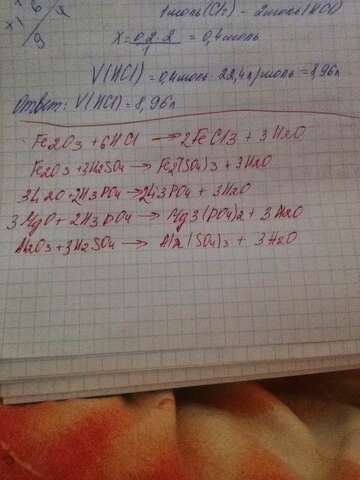 x 6 2
x 1
9
1 моль (Cl2) - 2 моль (HCl)
X = 0,2·2 / 1 = 0,4 моль
V(HCl) = 0,4 моль · 22,4 л/моль = 8,96 л
Ответ: V(HCl) = 8,96 л
Fe2O3 + 6HCl → 2FeCl3 + 3H2O
Fe2O3 + 3H2SO4 → Fe2(SO4)3 + 3H2O
3Li2O + 2H3PO4 → 2Li3PO4 + 3H2O
3MgO + 2H3PO4 → Mg3(PO4)2 + 3H2O
Al2O3 + 3H2SO4 → Al2(SO4)3 + 3H2O